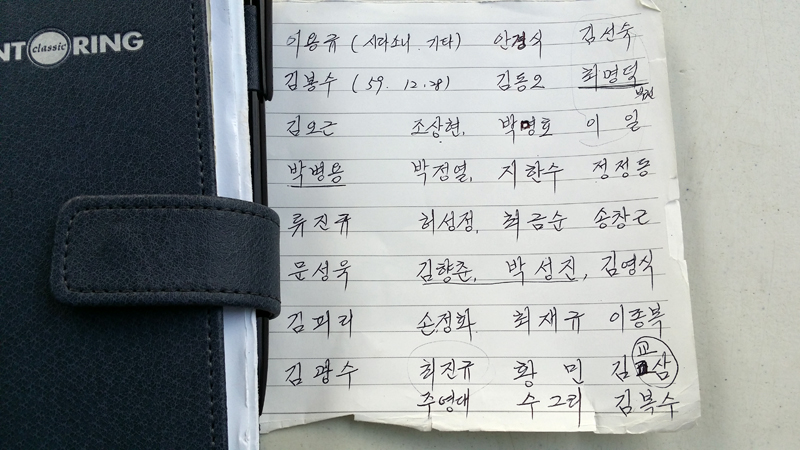 NTORING
classic
이용규 (시라소니. 기타) 안경식 김선숙
김봉수 (59. 12. 28) 김동오 최명덕
김오근 조상현, 박명호 이일
박병용 박정열, 지한수 정정동
류진규 허성정, 최금순 송창근
문성욱 김향준, 박성진, 김영식
김피리 손정화 최재규 이종복
김광수 최진규 황민 김교삼
주영대 수그리 김복수